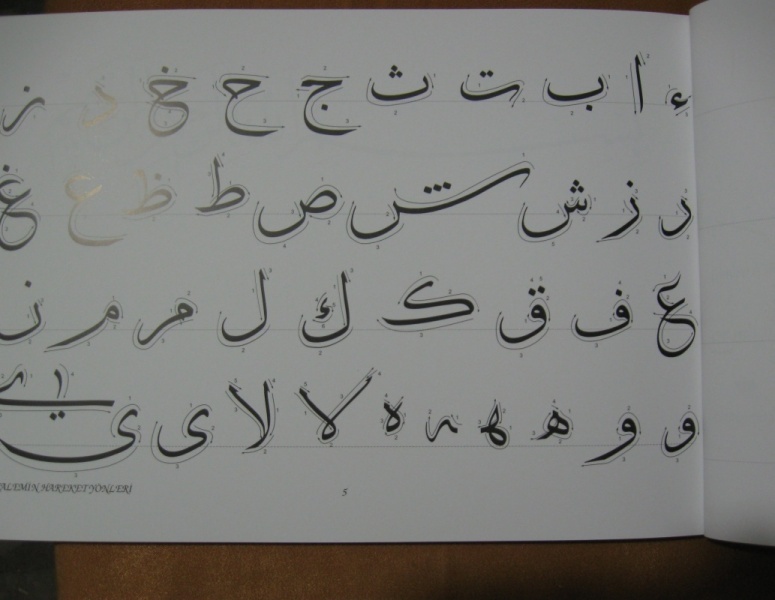 ء ا ب ت ث ج ح خ د ز
ر ز ش س ص ط ظ ع غ
ع ف ق ک ك ل م م ن
و و ه ه ه ه لا لا ى ى
ALEMİN HAREKET YÖNLERİ
5